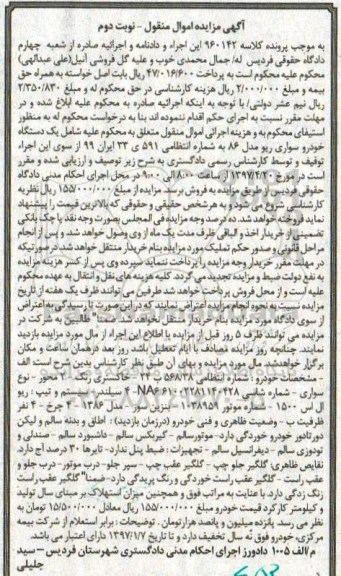 آگهی مزایده اموال منقول - نوبت دوم
به موجب پرونده کلاسه ۹۶۰۱۴۲ این اجراء و دادنامه و اجرائیه صادره از شعبه چهارم
دادگاه حقوقی فردیس له/ جمال محمدی خوب و علیه گل فروشی آنیل(علی عبدالهی)
محکوم علیه محکوم است به پرداخت ۴۷/۰۱۶/۶۰۰ ریال بابت اصل خواسته به همراه حق
بیمه و مبلغ ۲/۰۰۰/۰۰۰ ریال هزینه کارشناسی در حق محکوم له و مبلغ ۲/۳۵۰/۸۳۰
ریال نیم عشر دولتی/ با توجه به اینکه اجرائیه صادره به محکوم علیه ابلاغ شده و در
مهلت مقرر نسبت به اجرای حکم اقدام ننموده اند بنا به درخواست محکوم له به منظور
استیفای محکوم به و هزینه اجرائی اموال منقول متعلق به محکوم علیه شامل یک دستگاه
خودرو سواری ریو مدل ۸۶ به شماره انتظامی ۵۹۱ ی ۳۳ ایران ۹۹ از سوی این اجراء
توقیف و توسط کارشناس رسمی دادگستری به شرح زیر توصیف و ارزیابی شده و مقرر
است در تاریخ ۱۳۹۷/۲/۲۰ از ساعت ۸:۰۰ الی ۹:۰۰ در محل اجرای احکام مدنی دادگاه
حقوقی فردیس از طریق مزایده به فروش برسد. مزایده از مبلغ ۱۵۵/۰۰۰/۰۰۰ ریال نظریه
کارشناسی شروع می شود و به هر شخص حقیقی و حقوقی که بالاترین قیمت را پیشنهاد
نماید فروخته خواهد شد. ده درصد وجه مزایده فی المجلس بصورت وجه نقد یا چک بانکی
تضمینی از خریدار اخذ و الباقی ظرف مدت یک ماه از وی وصول خواهد شد و پس از انجام
مراحل قانونی و صدور حکم تملیک مورد مزایده بنام خریدار منتقل خواهد شد. در صورتیکه
در مهلت مقرر خریدار وجه مزایده را پرداخت ننماید سپرده وی پس از کسر هزینه مزایده
به نفع دولت ضبط و مزایده تجدید می گردد. کلیه هزینه های نقل و انتقال به عهده محکوم
علیه است و از محل فروش پرداخت خواهد شد. طرفین می توانند ظرف یک هفته از تاریخ
مزایده نسبت به نحوه انجام مزایده اعتراض نمایند که در این صورت تا رسیدگی به اعتراض
از سوی دادگاه مورد مزایده به خریدار منتقل نخواهد شد. ضمناً طالبین به شرکت در
مزایده می توانند ظرف ۵ روز قبل از مزایده با اطلاع این اجراء از مال مورد مزایده بازدید
نمایند. چنانچه روز مزایده مصادف با ایام تعطیل باشد روز بعد در همان ساعت و مکان
برگزار خواهد شد. مال مورد مزایده و بهای آن طبق نظر کارشناس بدین شرح است: الف
- مشخصات خودرو : شماره انتظامی ۵۶۸۳۸ ب ۲۴ - خاکستری رنگ - ۲ محور - نوع
سواری - شماره شاسی NA۶۶۱۰۰۲۲۸۱۱۲۰۴۲۸ - ۴ سیلندر - سیستم و تیپ : ریو
ال اس ۱۵۰۰ - شماره موتور ۱۰۳۸۹۵۹ - بنزین سوز - مدل ۱۳۸۶ - ۴ چرخ - ۴ نفر
ظرفیت ب - وضعیت ظاهری و فنی خودرو (در زمان بازدید) : اطاق و بدنه سالم و لیکن
دور تا دور خودرو خوردگی دارد- موتور سالم - گیربکس سالم - داشبورد سالم - صندلی و
تودوزی سالم - دیفرانسیل سالم - تجهیزات : ضبط پنل ندارد- تایرها ۳۰ درصد آج دارد.
نقایص ظاهری: گلگیر جلو چپ - گلگیر عقب چپ - سپر جلو- درب موتور - درب جلو و
عقب راست - گلگیر عقب راست خوردگی و رنگ پریدگی دارد- ضمناً گلگیر عقب راست
زنگ زدگی دارد. با عنایت به مراتب فوق و همچنین میزان استهلاک بر مبنای سال تولید
و کیلومتر کارکرد قیمت خودرو مبلغ ۱۵۵/۰۰۰/۰۰۰ ریال معادل ۱۵/۵۰۰/۰۰۰ تومان به
نظر می رسد. پانزده میلیون و پانصد هزار تومان . توضیحات : برابر استعلام از شرکت بیمه
مرکزی، خودرو فوق نه سال تخفیف دارد و تا تاریخ ۱۳۹۷/۱/۷ دارای اعتبار می باشد.
م /الف ۱۰۰۵ دادورز اجرای احکام مدنی دادگستری شهرستان فردیس – سید
جلیلی